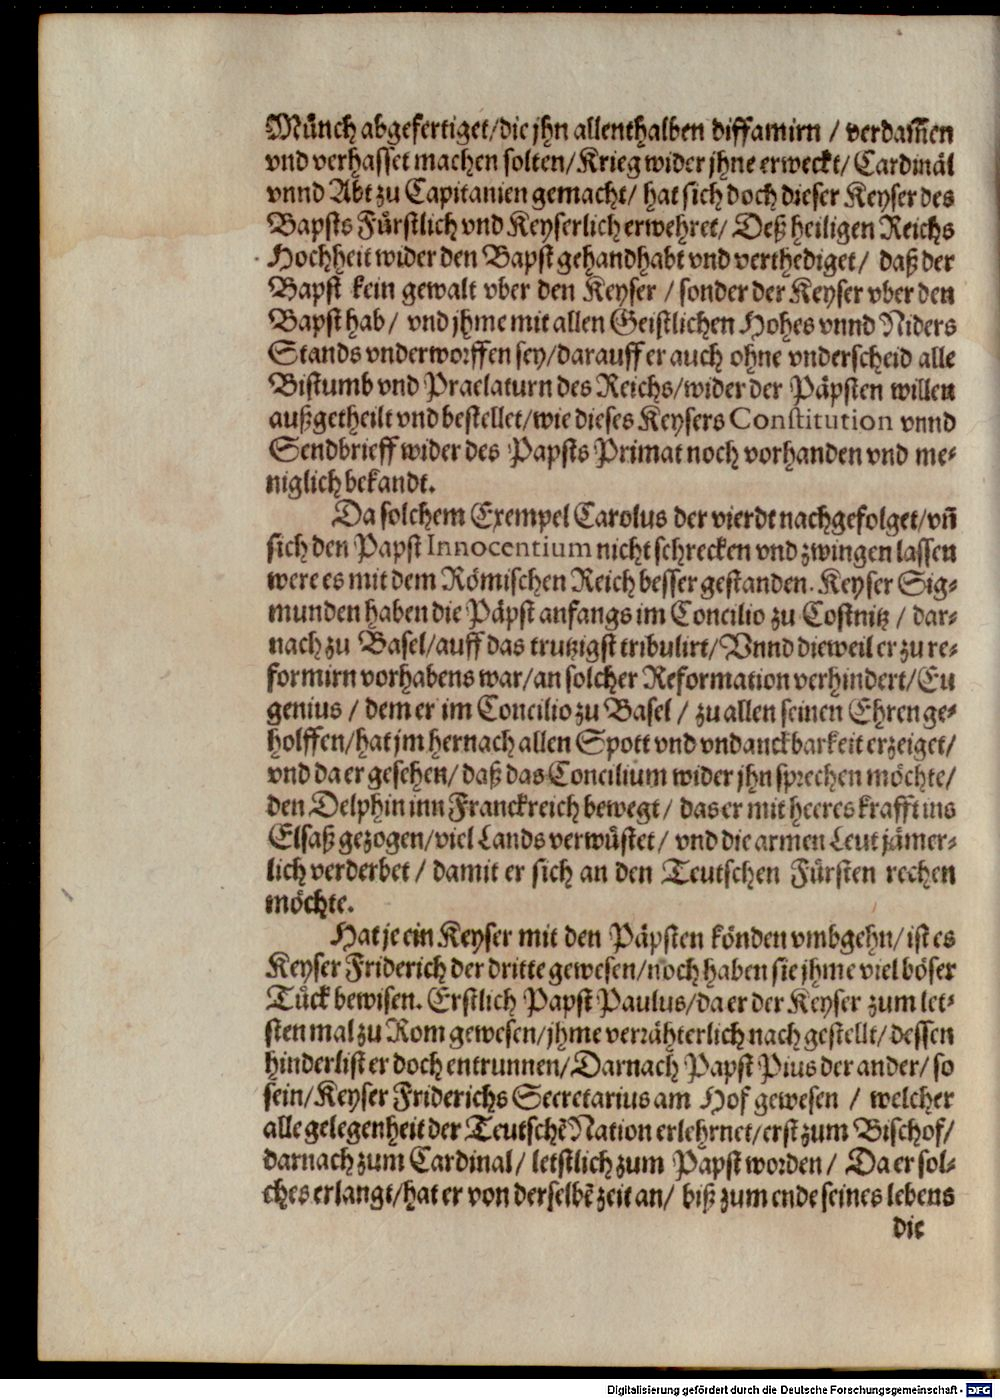 Münch abgefertiget/die jhn allenthalben diffamirn / verdam̃en
vnd verhasset machen solten/Krieg wider jhne erweckt/ Cardinäl
vnnd Abt zu Capitanien gemacht/ hat sich doch dieser Keyser des
Bapsts Fürstlich vnd Keyserlich erwehret/ Deß heiligen Reichs
Hochheit wider den Bapst gehandhabt vnd verthediget/ daß der
Bapst kein gewalt vber den Keyser / sonder der Keyser vber den
Bapst hab/ vnd jhme mit allen Geistlichen Hohes vnnd Niders
Stands vnderworffen sey/darauff er auch ohne vnderscheid alle
Bistumb vnd Praelaturn des Reichs/wider der Päpsten willen
außgetheilt vnd bestellet/wie dieses Keysers Constitution vnnd
Sendbrieff wider des Papsts Primat noch vorhanden vnd me-
niglich bekandt.
Da solchem Exempel Carolus der vierdt nachgefolget/vñ
sich den Papst Innocentium nicht schrecken vnd zwingen lassen
were es mit dem Römischen Reich besser gestanden. Keyser Sig-
munden haben die Päpst anfangs im Concilio zu Costnitz / dar-
nach zu Basel/auff das trutzigst tribulirt/Vnnd dieweil er zu re-
formirn vorhabens war/an solcher Reformation verhindert/Eu
genius / dem er im Concilio zu Basel / zu allen seinen Ehren ge-
holffen/hat jm hernach allen Spott vnd vndanckbarkeit erzeiget/
vnd da er gesehen/ daß das Concilium wider jhn sprechen möchte/
den Delphin inn Franckreich bewegt/ das er mit heeres krafft ins
Elsaß gezogen/viel Lands verwüstet/ vnd die armen Leut jämer-
lich verderbet / damit er sich an den Teutschen Fürsten rechen
möchte.
Hat je ein Keyser mit den Päpsten könden vmbgehn/ ist es
Keyser Friderich der dritte gewesen/noch haben sie jhme viel böser
Tück bewisen. Erstlich Papst Paulus/da er der Keyser zum let-
sten mal zu Rom gewesen/jhme verrähterlich nach gestellt/ dessen
hinderlist er doch entrunnen/Darnach Papst Pius der ander/ so
sein/Keyser Friderichs Secretarius am Hof gewesen / welcher
alle gelegenheit der Teutschẽ Nation erlehrnet/erst zum Bischof/
darnach zum Cardinal/ letstlich zum Papst worden/ Da er sol-
ches erlangt/hat er von derselbẽ zeit an/ biß zum ende seines lebens
die
Digitalisierung gefördert durch die Deutsche Forschungsgemeinschaft - DFG